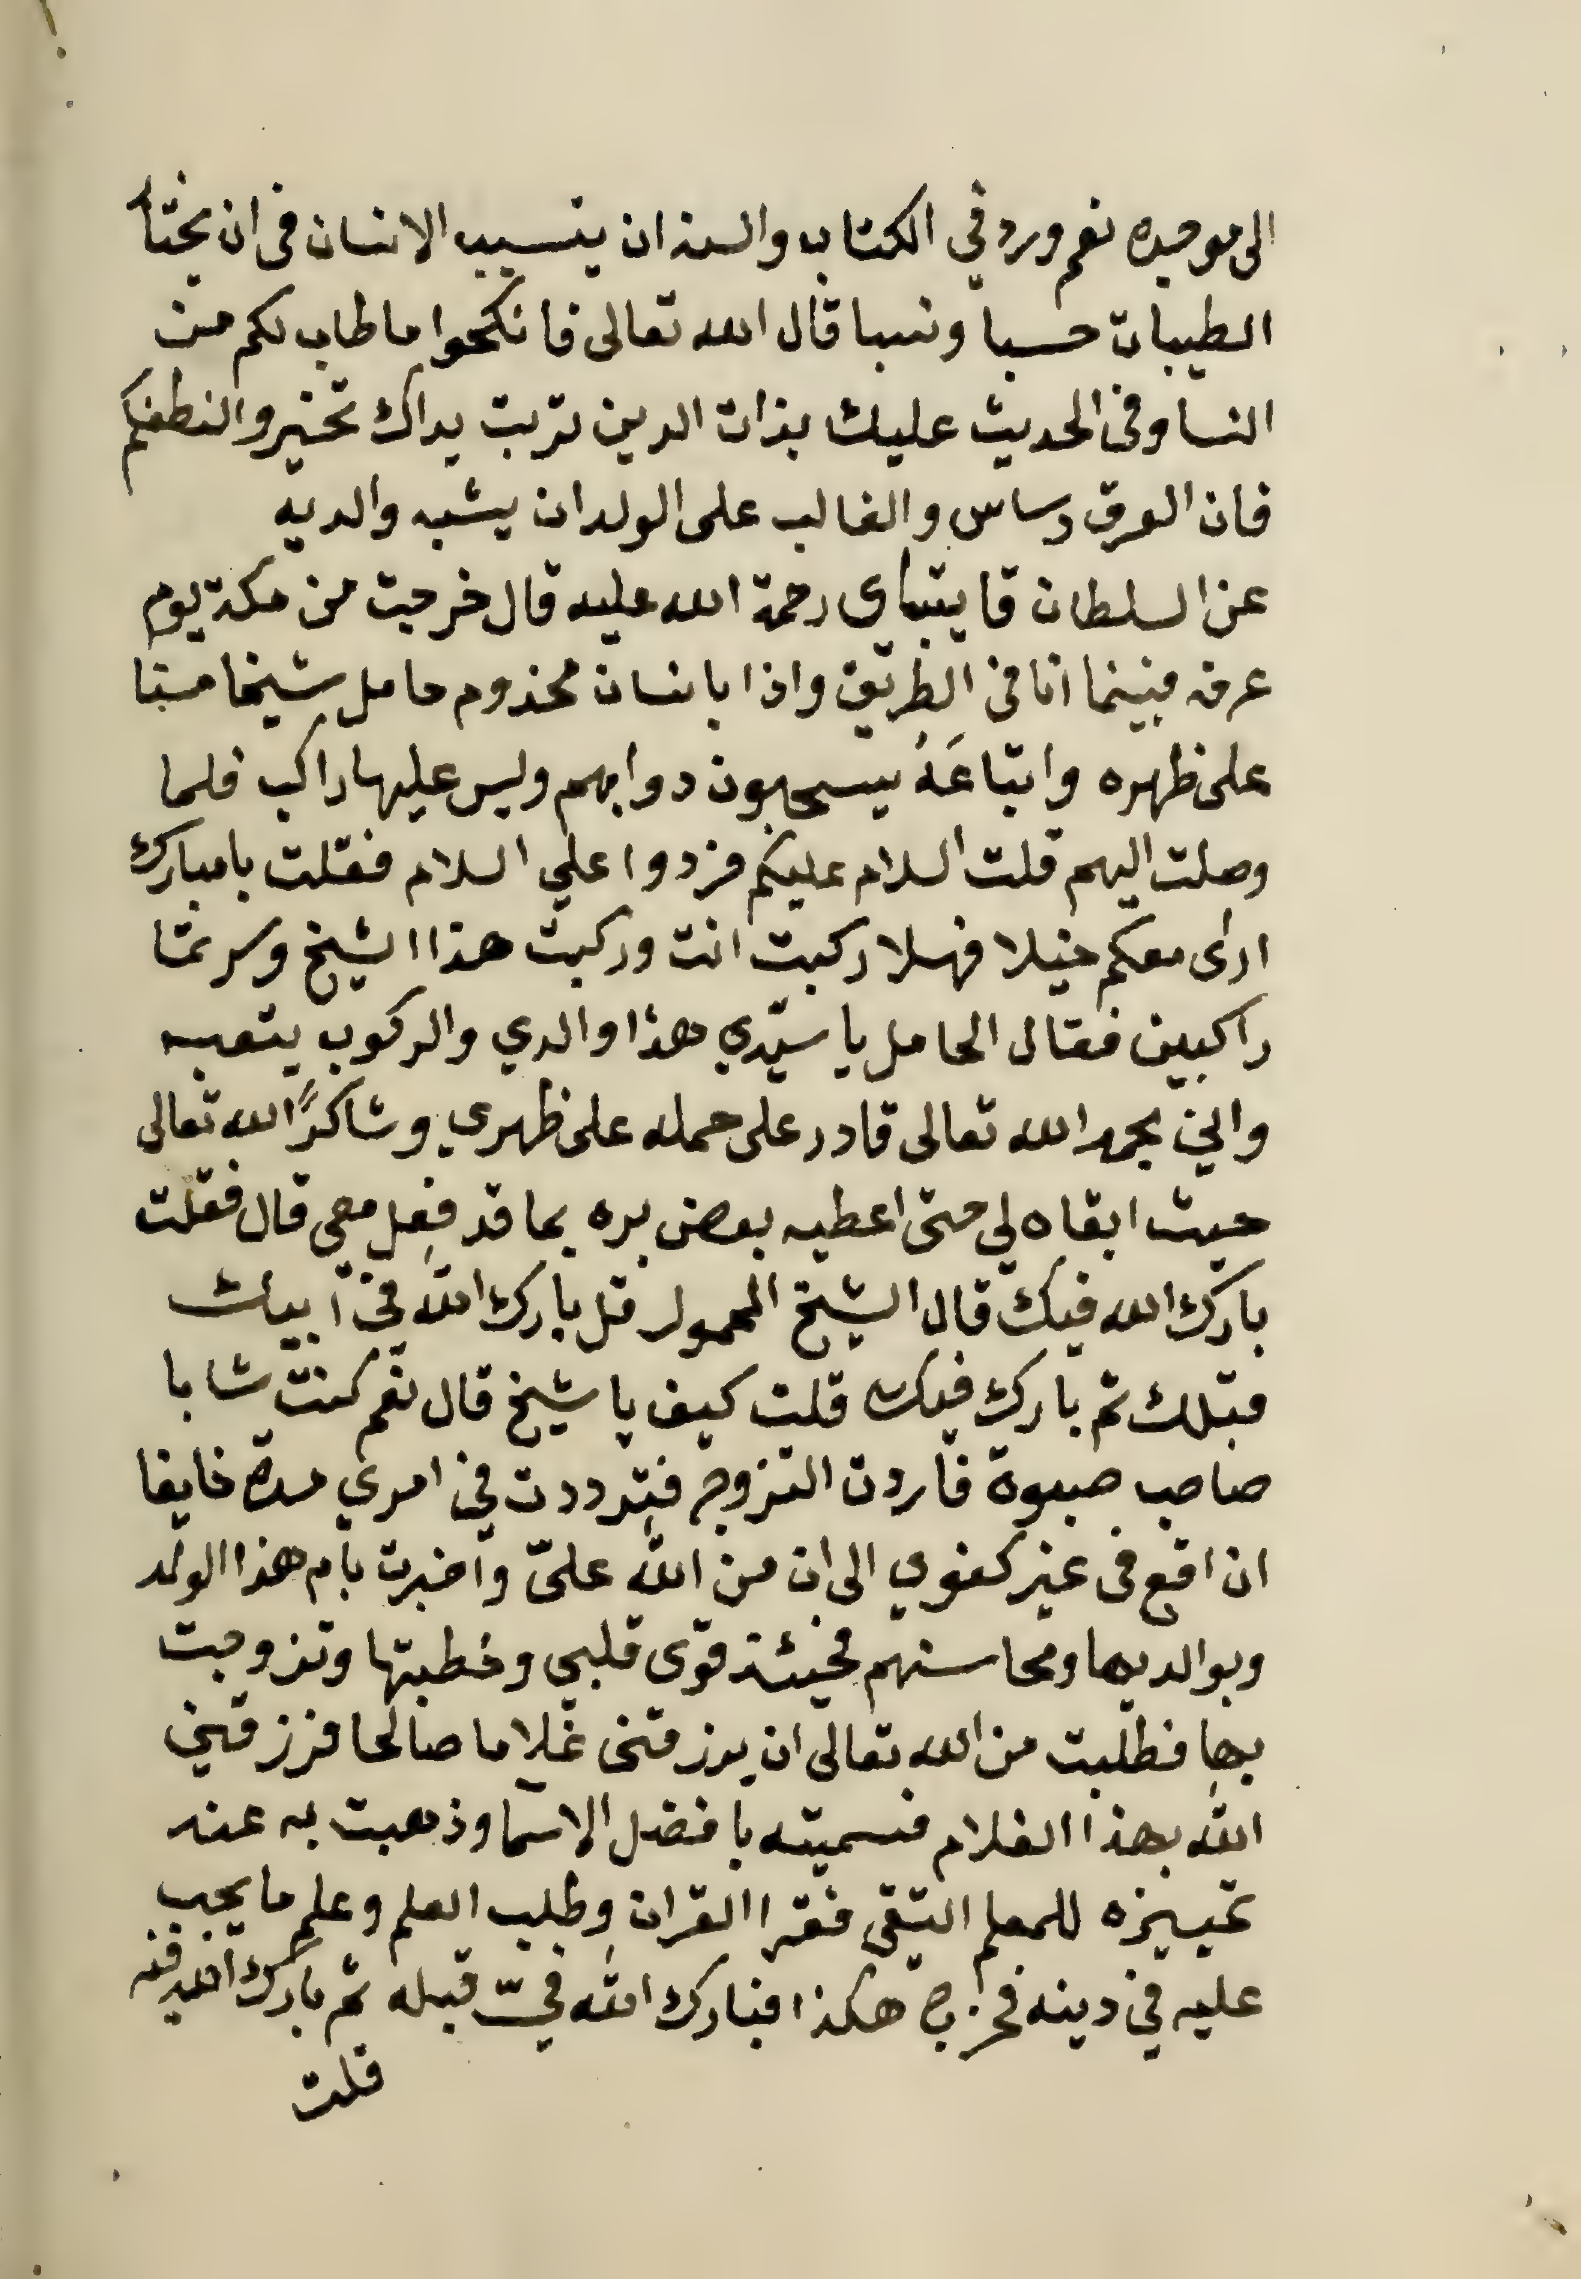 الى موجده نعم ورد في الكتاب والسنة ان يتسبب الانسان في ان يختار
الطيبات حسبا ونسبا قال الله تعالى فانكحوا ما طاب لكم من
النسا وفى الحديث عليك بذات الدين تربت يداك تخيروا لنطفكم
فان العرق دساس والغالب على الولد ان يشبه والديه
عن السلطان قايتباى رحمة الله عليه قال خرجت من مكة يوم
عرفه فبينما انا في الطريق واذا بانسان مجذوم حامل شيخا مسنا
على ظهره واتباعَهُ يسحبون دوابهم وليس عليها راكب فلما
وصلت اليهم قلت السلام عليكم فردوا علي السلام فقلت يا مبارك
ارى معكم خيلا فهلا ركبت انت وركبت هذا الشيخ وسرتما
راكبين فقال الحامل يا سيّدي هذا والدي والركوب يتعبه
واني بحمد الله تعالى قادر على حمله على ظهري وشاكرًا الله تعالى
حيث ابقاه لي حتى اعطيه بعض بره بما قد فعل معي قال فقلت
بارك الله فيك قال الشيخ المحمول قل بارك الله في ابيك
قبلك ثم بارك فيك قلت كيف يا شيخ قال نعم كنت شابا
صاحب صبوة فاردت التزوج فترددت في امري مدة خايفا
ان اقع في غير كفوي الى ان من الله علىّ واخبرت بام هذا الولد
وبوالديها ومحاسنهم فحينئذ قوى قلبي وخطبتها وتزوجت
بها فطلبت من الله تعالى ان يرزقنى غلاما صالحا فرزقني
الله بهذا الغلام فسميته بافضل الاسما وذهبت به عند
تمييزه للمعلم التقى فقرا القران وطلب العلم وعلم ما يجب
عليه في دينه فخرج هكذا فبارك الله فيّ قبله ثم بارك الله فيه
قلت